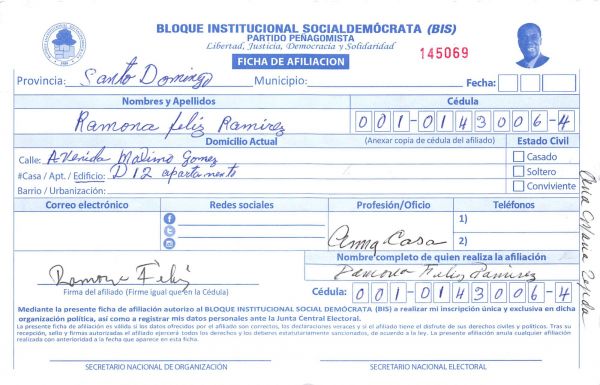 BLOQUE INSTITUCIONAL SOCIALDEMÓCRATA (BIS)
PARTIDO PEÑAGOMISTA
Libertad, Justicia, Democracia y Solidaridad
FICHA DE AFILIACION
145069
Provincia: Santo Domingo Municipio: Fecha:
Nombres y Apellidos Cédula
Ramona feliz Ramirez 001-0143006-4
Domicilio Actual (Anexar copia de cédula del afiliado) Estado Civil
Calle: Avenida Maximo Gomez Casado
#Casa / Apt. / Edificio: D 12 apartamento Soltero
Barrio / Urbanización: Conviviente
Correo electrónico Redes sociales Profesión/Oficio Teléfonos
1)
Ama Casa 2)
Nombre completo de quien realiza la afiliación
Ramona Feliz Ramirez
Ramona Feliz
Firma del afiliado (Firme igual que en la Cédula) Cédula: 001-0143006-4
Mediante la presente ficha de afiliación autorizo al BLOQUE INSTITUCIONAL SOCIAL DEMÓCRATA (BIS) a realizar mi inscripción única y exclusiva en dicha
organización política, así como a registrar mis datos personales ante la Junta Central Electoral.
La presente ficha de afiliación es válida si los datos ofrecidos por el afiliado son correctos, las declaraciones veraces y si el afiliado tiene el disfrute de sus derechos civiles y políticos. Tras su
recepción, sello y firmas autorizadas el afiliado ejercerá todos los derechos y los deberes estatutariamente sancionados, de acuerdo a la ley. La presente afiliación anula cualquier afiliación
realizada con anterioridad a la fecha que aparece en esta ficha.
SECRETARIO NACIONAL DE ORGANIZACIÓN SECRETARIO NACIONAL ELECTORAL